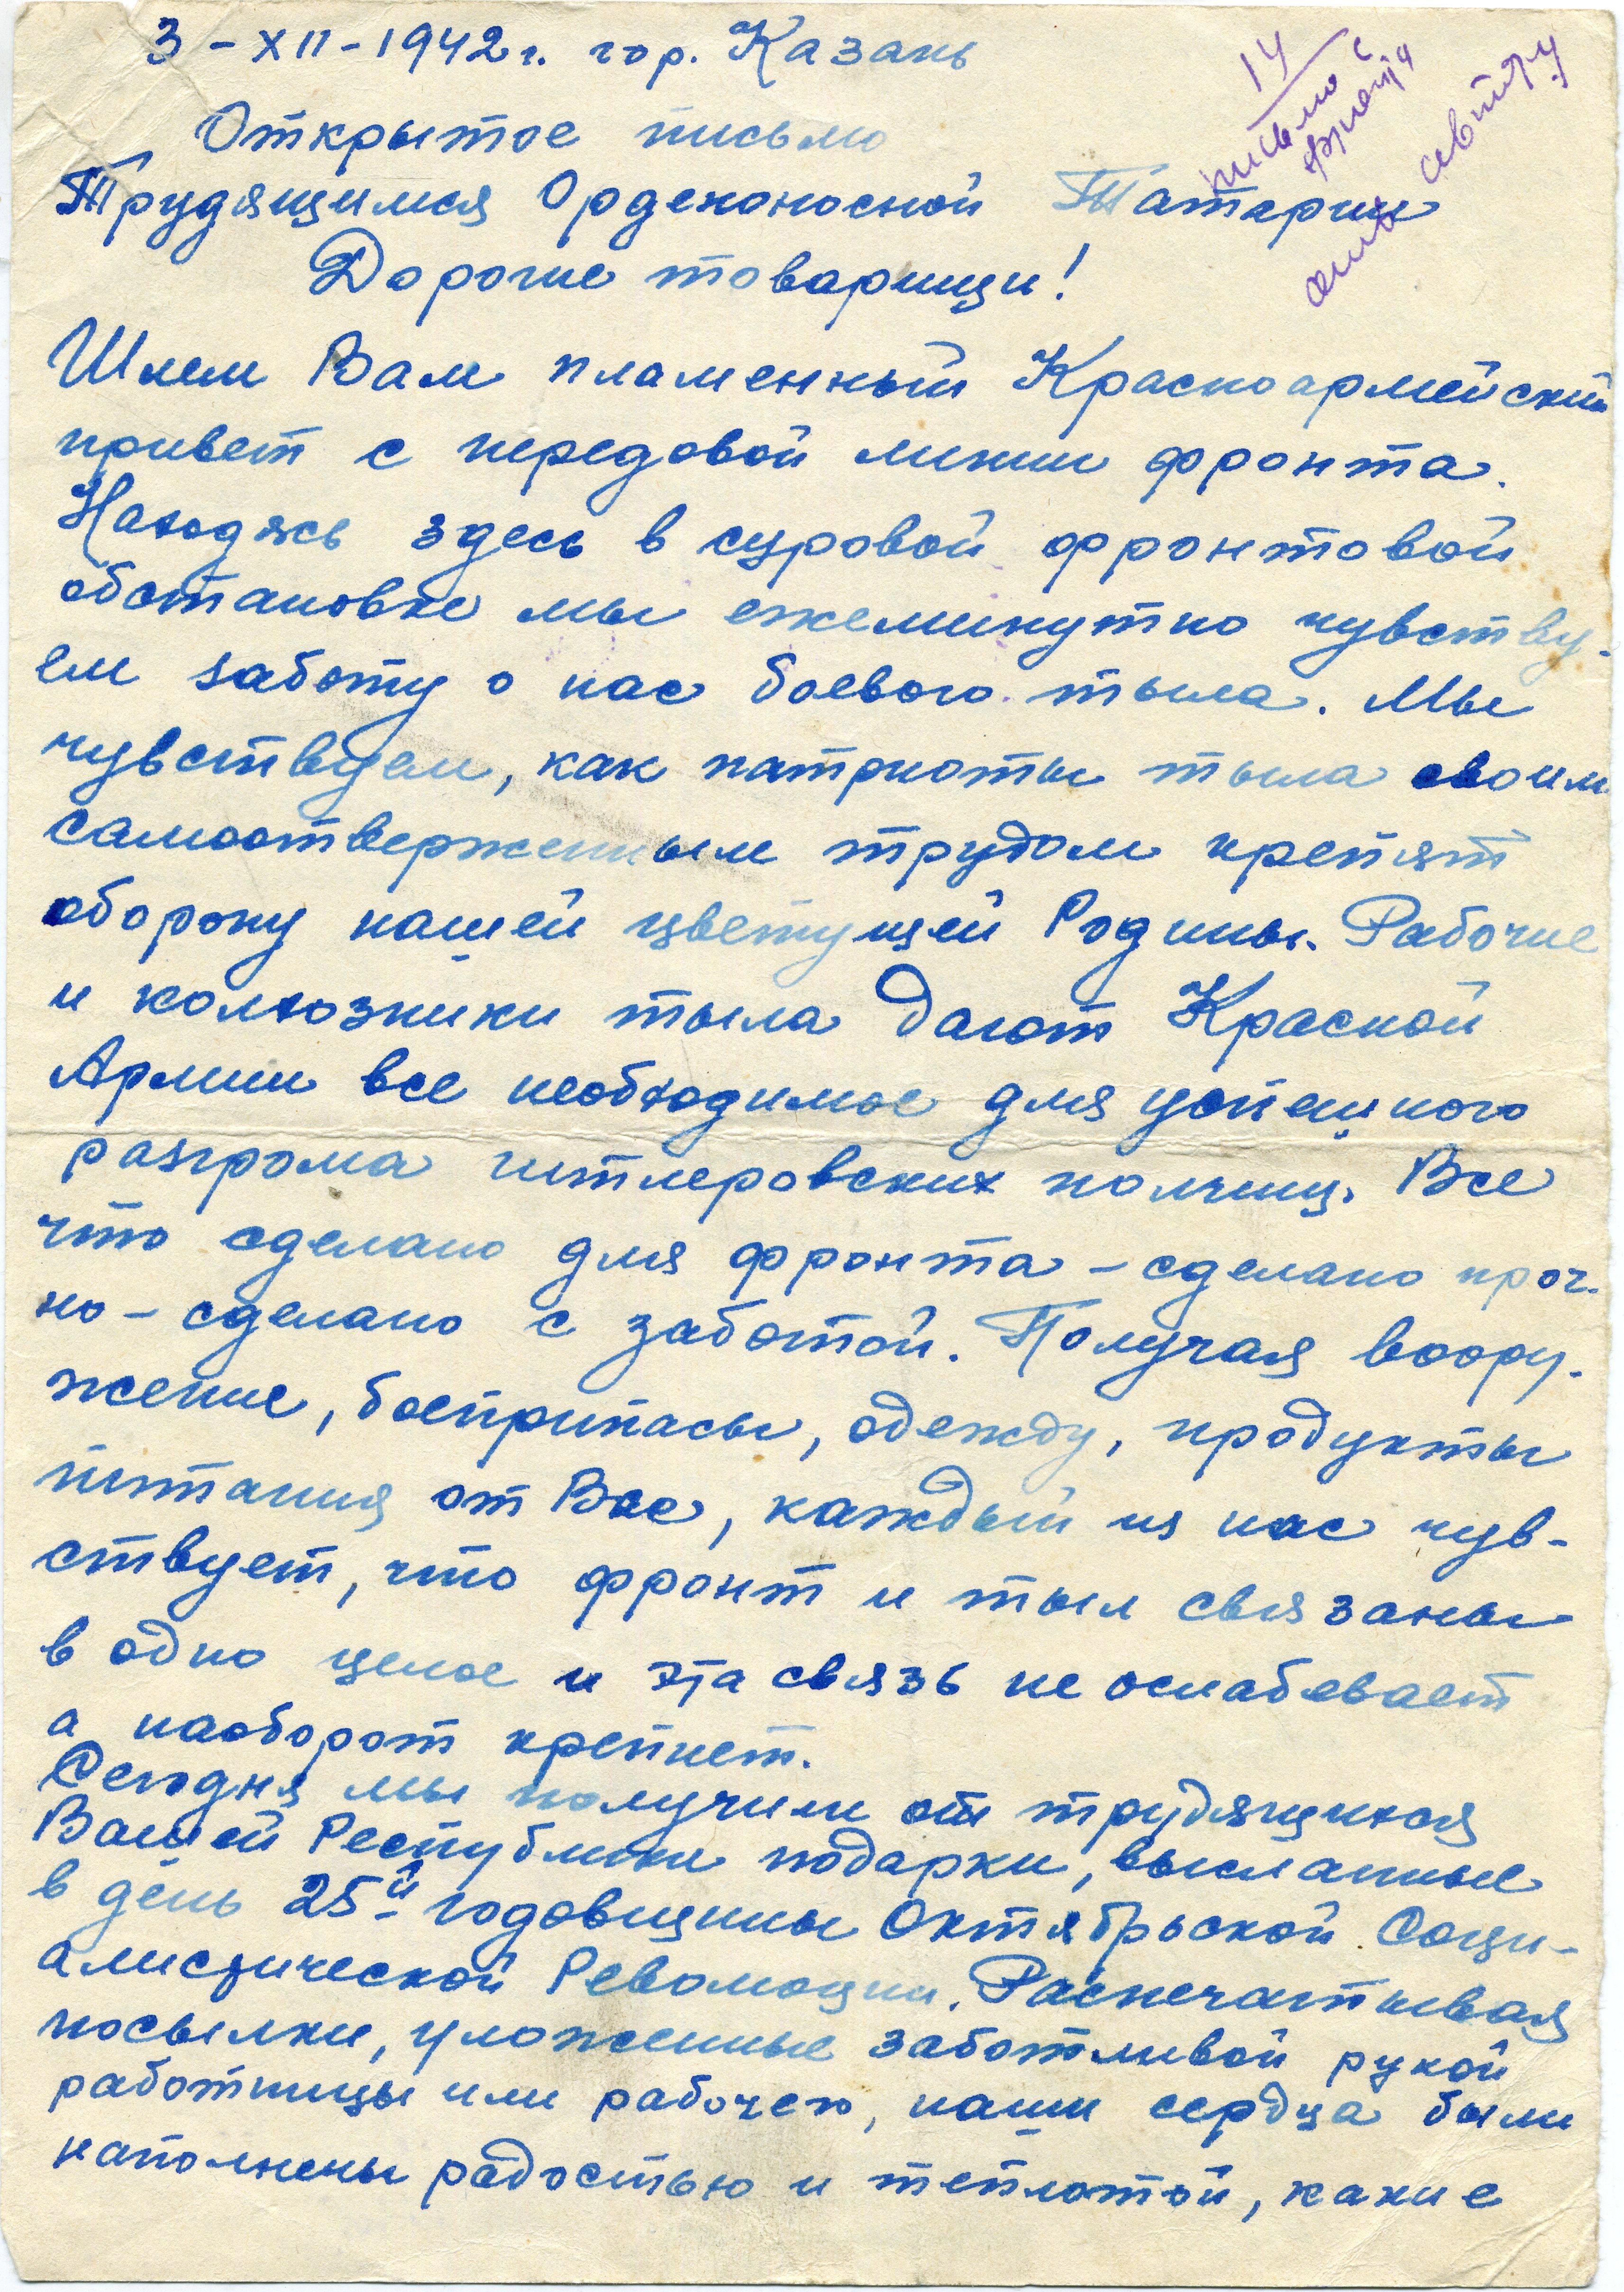 3-XII-1942г. гор. Казань
14
письмо с
фронта
Открытое письмо
Трудящимся Орденоносной Татарии
Дорогие товарищи!
Шлем Вам пламенный Красноармейский
привет с передовой линии фронта.
Находясь здесь в суровой фронтовой
обстановке мы ежеминутно чувству-
ем заботу о нас боевого тыла. Мы
чувствуем, как патриоты тыла своим
самоотверженным трудом крепят
оборону нашей цветущей Родины. Рабочие
и колхозники тыла дают Красной
Армии все необходимое для успешного
разгрома гитлеровских полчищ. Все
что сделано для фронта - сделано проч-
но - сделано с заботой. Получая воору-
жение, боеприпасы, одежду, продукты
питания от Вас, каждый из нас чув-
ствует, что фронт и тыл связаны
в одно целое и эта связь не ослабевает
а наоборот крепнет.
Сегодня мы получили от трудящихся
Вашей Республики подарки, высланные
в день 25-й годовщины Октябрьской Соци-
алистической Революции. Распечатывая
посылки, уложенные заботливой рукой
работницы или рабочего, наши сердца были
наполнены радостью и теплотой, какие